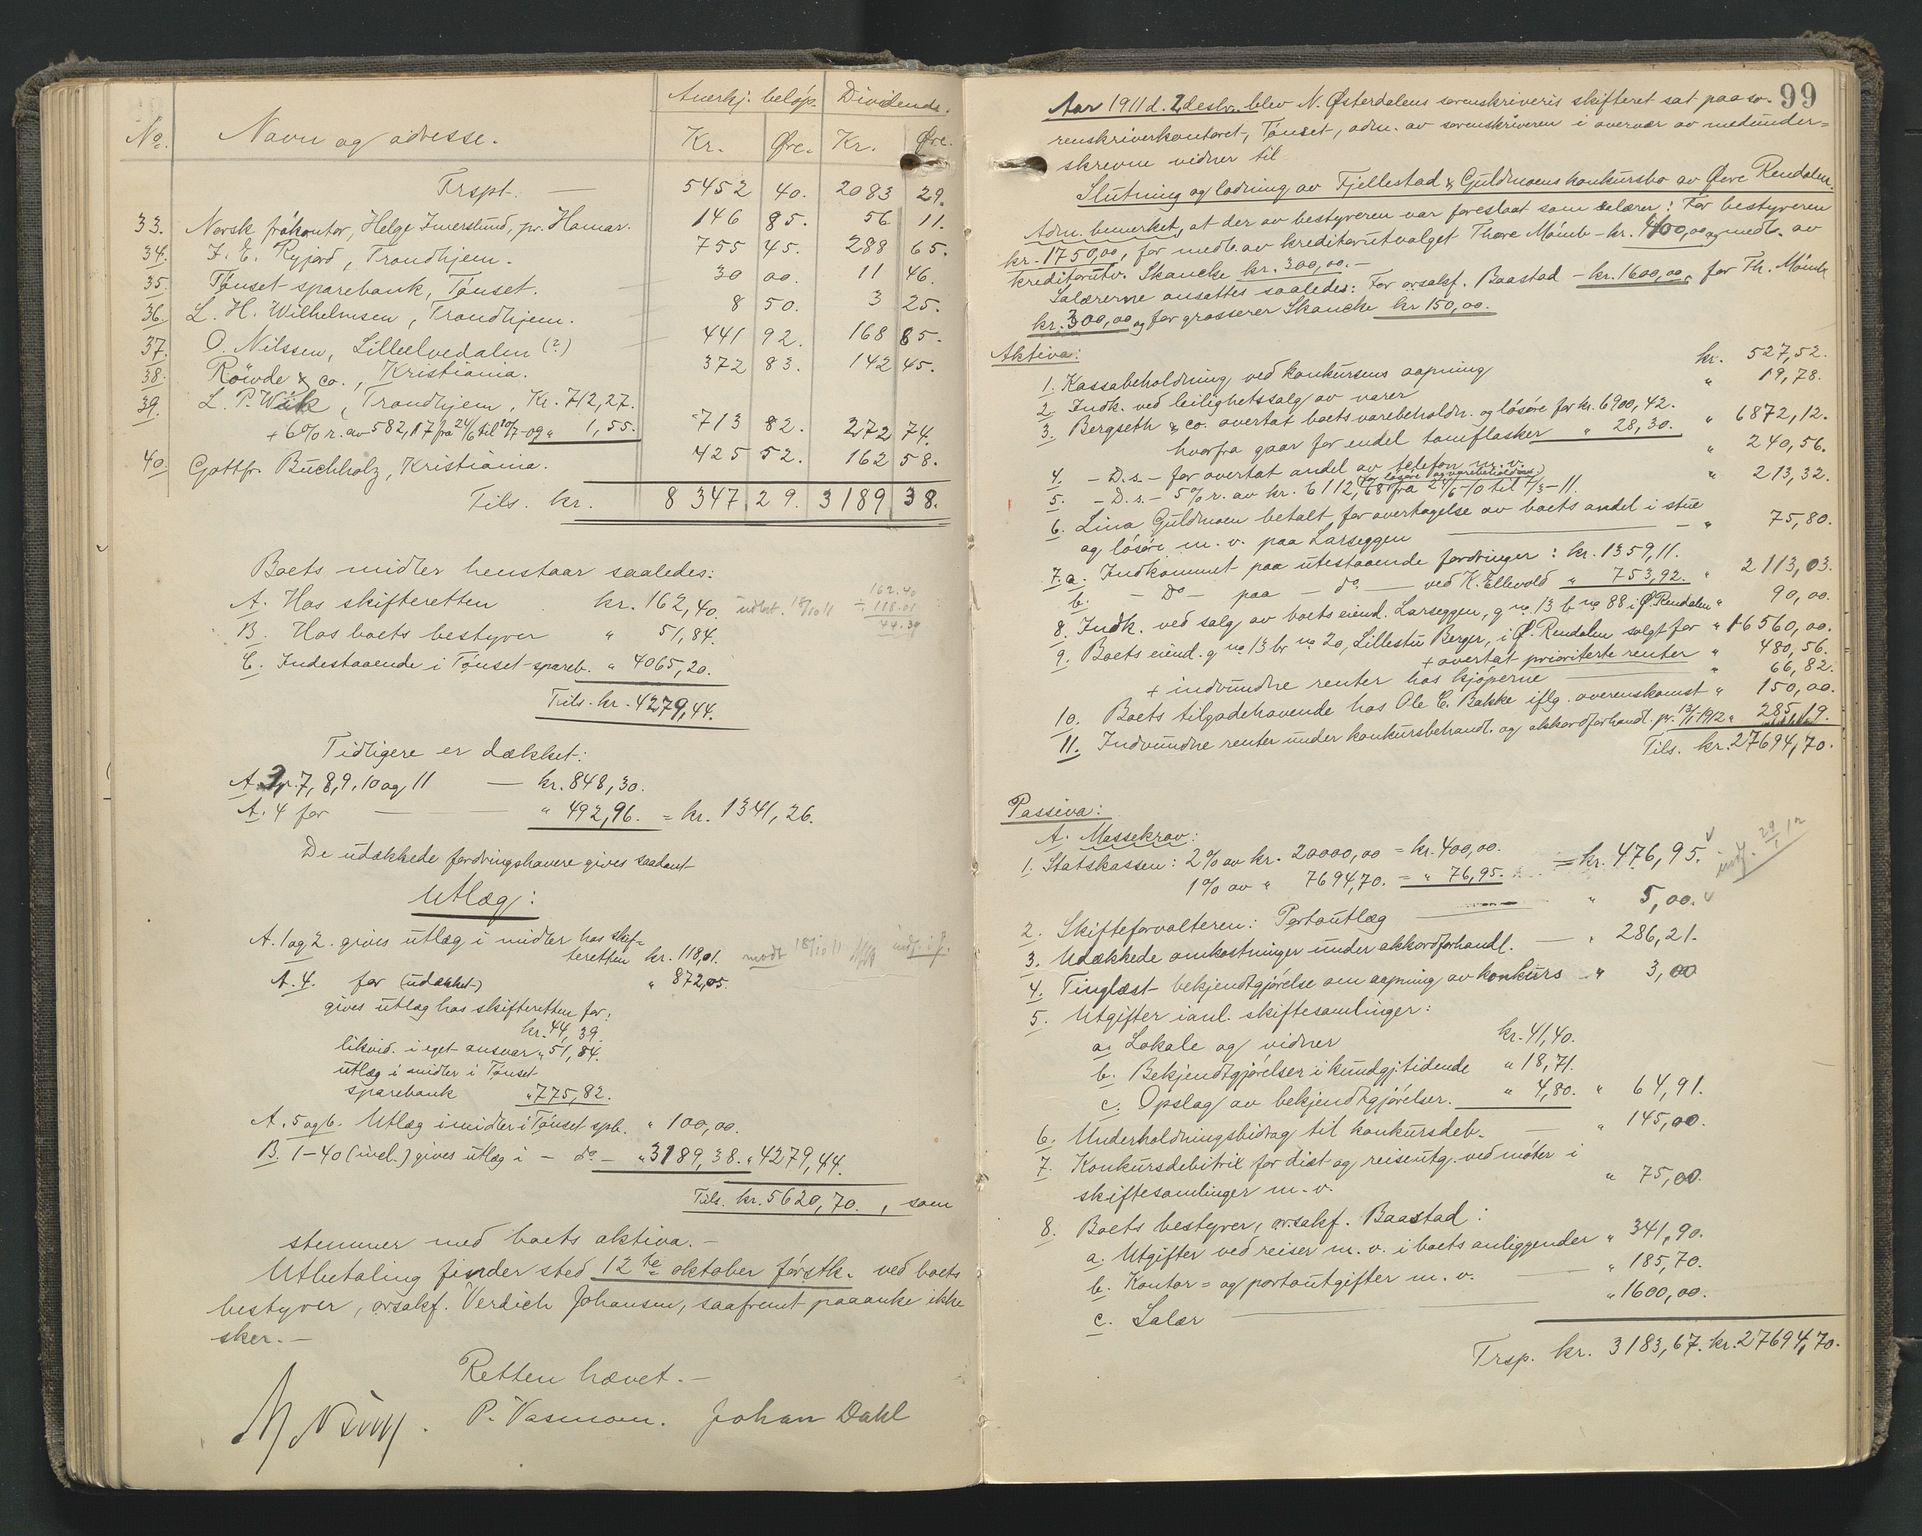 Anerkj. beløp. Dividende.
No. Navn og adresse. Kr. Øre. Kr. Øre.
Trspt. — 5452 40. 2083 29.
33. Norsk frökontor, Helge Imerslund, pr. Hamar. 146 85. 56 11.
34. J. E. Ryjord, Trondhjem. 755 45. 288 65.
35. Tønset sparebank, Tønset. 30 00. 11 46.
36. L. H. Wilhelmsen, Trondhjem. 8 50. 3 25.
37. O. Nilssen, Lilleelvedalen (?) 441 92. 168 85.
38. Röwde & co., Kristiania. 372 83. 142 45.
39. L. P. Wiik, Trondhjem, Kr. 712,27.
+ 6% r. av 582,17 fra 24/6 til 10/7-09 „ 1,55. 713 82. 272 74.
40. Gottfr. Buchholz, Kristiania. 425 52. 162 58.
Tils. kr. 8 347 29. 3 189 38.
Boets midler henstaar saaledes:
A. Hos skifteretten kr. 162,40. utbet. 18/10 11 162.40
÷ 118.01
44.39
B. Hos boets bestyrer „ 51,84.
C. Indestaaende i Tønset spareb. „ 4065,20.
Tils. kr. 4279,44.
Tidligere er dækket:
A. 3, 7, 8, 9, 10 og 11 — kr. 848,30.
A. 4 for — „ 492,96. = kr. 1341,26.
De udækkede fordringshavere gives saadant
Utlæg:
A. 1 og 2. gives utlæg i midler hos skif=
teretten kr. 118,01. modt 18/10 11
A. 4. for (udækket) „ 872,05.
gives utlæg hos skifteretten for:
kr. 44,39.
likvid. i eget ansvar „ 51,84.
utlæg i midler i Tønset
sparebank „ 775,82.
A. 5 og 6. Utlæg i midler i Tønset spb. „ 100,00.
B. 1-40 (incl.) gives utlæg i — do — „ 3189,38. „ 4279,44.
Tils. kr. 5620,70., som
stemmer med boets aktiva. —
Utbetaling finder sted 12te oktober førstk. ved boets
bestyrer, o.r.sakf. Verdich Johansen, saafremt paaanke ikke
sker. —
Retten hævet. —
P. Vasmoen. Johan Dahl
99
Aar 1911 d. 2 desbr. blev N. Østerdalens sorenskriveris skifteret sat paa so-
renskriverkontoret, Tønset, adm. av sorenskriveren i overvær av medunder=
skrevne vidner til
Slutning og lodning av Fjellestad & Guldmoens konkursbo av Øvre Rendalen.
Adm. bemerket, at der av bestyreren var foreslaat som salærer: For bestyreren
kr. 1750,00, for medl. av kreditorutvalget Thore Mömb — kr. 400,00 og medl. av
kreditorutv. Skancke kr. 300,00. —
Salærerne ansattes saaledes: For o.r.sakf. Baastad — kr. 1600,00, for Th. Mömb
kr. 300,00 og for grosserer Skancke kr 150,00.
Aktiva:
1. Kassabeholdning ved konkursens aapning kr. 527,52.
2. Indk. ved leilighetssalg av varer „ 19,78.
3. Bergseth & co. overtat boets varebeholdn. og løsøre for kr. 6900,42.
hvorfra gaar for endel tomflasker „ 28,30. „ 6872,12.
4. — D.s. — for overtat andel av telefon m. v. „ 240,56.
5. — D.s. — 5% r. av kr. 6112,68 (for løsøre og varebeholdning) fra 24/6-10 til 7/3-11. „ 213,32.
6. Lina Guldmoen betalt for overtagelse av boets andel i stue
og løsøre m. v. paa Larseggen — „ 75,80.
7. a. Indkommet paa utestaaende fordringer: kr. 1359,11.
b. — Do — paa — do — ved K. Ellevold „ 753,92. „ 2113,03.
8. Indk. ved salg av boets eiend. Larseggen, g no 13 b no 88 i Ø. Rendalen „ 90,00.
9. Boets eiend. g no 13 br no 20, Lillestu Berger, i Ø. Rendalen solgt for „ 16560,00.
+ overtat prioriterte renter „ 480,56.
+ indvundne renter hos kjøperne „ 66,82.
10. Boets tilgodehavende hos Ole C. Bakke iflg. overenskomst „ 150,00.
11. Indvundne renter under konkursbehandl. og akkordforhandl. pr. 13/1-1912 „ 285,19.
Tils. kr. 27694,70.
Passiva:
A. Massekrav:
1. Statskassen: 2% av kr. 20000,00 = kr. 400,00.
1% av „ 7694,70. = „ 76,95. = kr. 476,95. indf. 29/1 12
2. Skifteforvalteren: Portoutlæg — „ 5,00.
3. Udækkede omkostninger under akkordforhandl. — „ 286,21.
4. Tinglæst bekjendtgjørelse om aapning av konkurs — „ 3,00
5. Utgifter i anl. skiftesamlinger:
a. Lokale og vidner kr. 41,40.
b. Bekjendtgjørelser i kundgj.tidende „ 18,71.
c. Opslag av bekjendtgjørelser. „ 4,80. „ 64,91.
6. Underholdningsbidrag til konkursdeb. — „ 145,00.
7. Konkursdebitrix for diæt og reiseutg. ved møter i
skiftesamlinger m. v. „ 75,00.
8. Boets bestyrer, o.r.sakf. Baastad:
a. Utgifter ved reiser m. v. i boets anliggender „ 341,90.
b. Kontor= og portoutgifter m. v. — „ 185,70.
c. Salær — „ 1600,00.
Trsp. kr. 3183,67. kr. 27694,70.